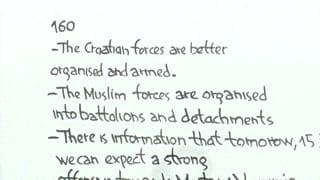 160
-The Croatian forces are better
organised and armed.
-The Muslim forces are organised
into battalions and detachments
-There is information that tomorrow, 15
we can expect a strong
offensive towards